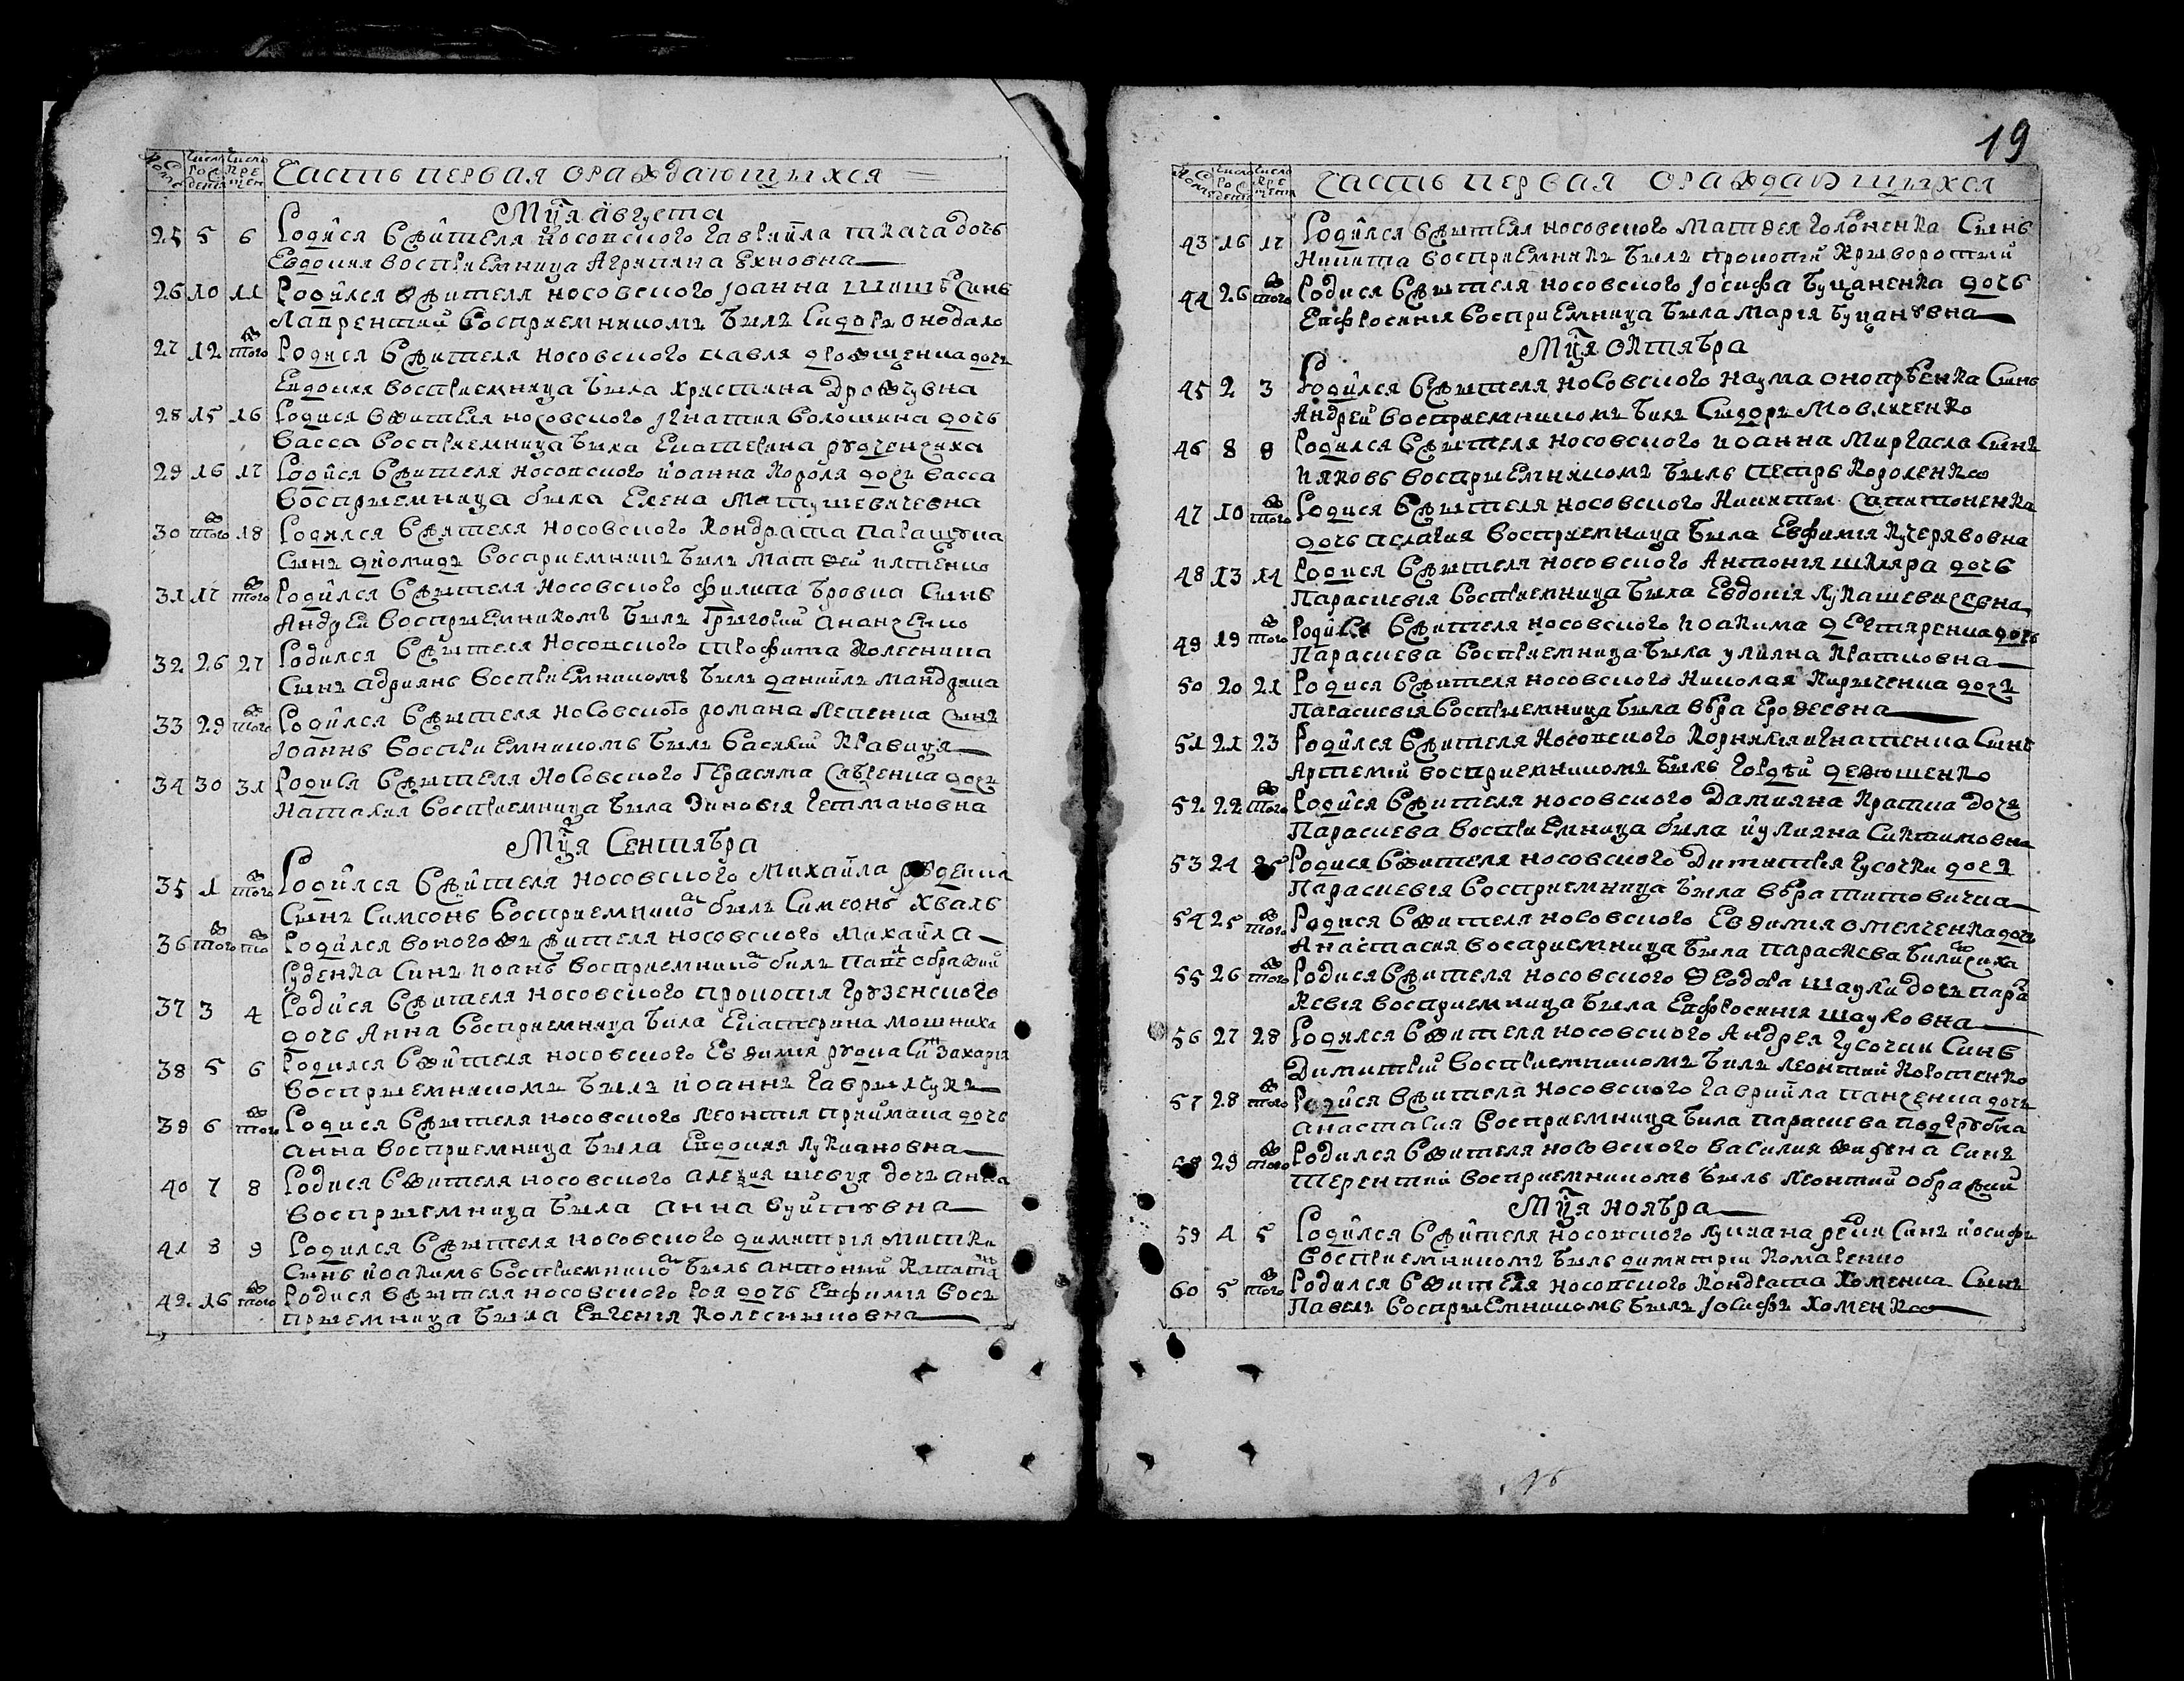 Часть первая ораждающихся
Мця августа
25 5 6 Родися вжителя носовского гавриила ткача дочь
Евдокия восприемница Агрипина
26 10 11 Родился вжителя носовского Iоанна Синъ
Лаврентий восприемникомъ билъ Сидоръ
27 12 того Родися вжителя носовского павла дочь
Евдокия восприемница была христина
28 15 16 Родися вжителя носовского Iгнатия волошина дочь
васса восприемница была Екатерина
29 16 17 Родися вжителя носовского иоанна короля дочь васса
восприемница была Елена Матушевичевна
30 того 18 Родился вжителя носовского кондрата
Сынъ диомидъ восприемникъ былъ матфей
31 17 того Родился вжителя носовского филипа бровка Сынъ
Андрей восприемникомъ былъ Григорий ананченко
32 26 27 Родился вжителя носовского трофима колесника
Сынъ адриянъ восприемникомъ былъ даниилъ мандрика
33 29 того Родился вжителя носовского романа лепенка Сынъ
Iоаннъ восприемникомъ былъ василий кравиця
34 30 31 Родися вжителя носовского Герасима дочь
Наталия восприемница была Зиновiя гетмановна
Мця Сентябра
35 1 того Родился вжителя носовского Михаила руденка
Сынъ Симеонъ восприемнико былъ Симеонъ хваль
36 того того Родился воногож жителя носовского михаила
руденка Синъ иоанъ восприемнико билъ
37 3 4 Родися вжителя носовского прокопiя грузенского
дочь Анна восприемница била Екатерина мошниха
38 5 6 Родился вжителя носовского Евфимiя рудка Сн захарiя
восприемникомъ былъ иоаннъ гаврилчукъ
39 6 того Родися вжителя носовского леонтия приймака дочь
анна восприемница была Евдокия лукиановна
40 7 8 Родися вжителя носовского алексия шевця дочь анна
восприемница была анна
41 8 9 Родился вжителя носовского димитрiя митки
Сынъ иоакимъ восприемнико былъ антоний
42 16 того Родися вжителя носовского дочь Евфимия вос
приемница была Евгенiя колесниковна
19
Часть первая ораждающихся
43 16 17 Родился вжителя носовского матфея голоненка Сынъ
Никита восприемникъ былъ прокопiй криворотий
44 26 того Родися вжителя носовского Iосифа буцаненка дочь
Епфросинiя восприемница была Марiя буцанувна
Мця октября
45 2 3 Родился вжителя носовского наума онопрѣенка Сынъ
Андрей восприемникомъ билъ Сидоръ Мовличенко
46 8 9 Родился вжителя носовского иоанна Миргасла Сынъ
ияковъ восприемникомъ былъ петръ короленко
47 10 того Родися вжителя носовского Никиты
дочь пелагия восприемница была Евфимiя кучерявовна
48 13 14 Родися вжителя носовского Антонiя шкляра дочь
Параскевiя восприемница была Евдокiя лукашевичевна
49 19 того Родися вжителя носовского иоакима дегтяренка дочь
Параскева восприемница была улияна
50 20 21 Родися вжителя носовского Николая кириченка дочъ
Параскевiя восприемница была вѣра Ерофеевна
51 21 23 Родился вжителя носовского корнилiя игнатенка Сынъ
Артемий восприемникомъ былъ гордѣй
52 22 того Родися вжителя носовского Дамияна дочъ
Параскева восприемница была иулияна
53 24 25 Родися вжителя носовского Димитрiя гусочки дочъ
Параскевiя восприемница была вѣра титовичка
54 25 того Родися вжителя носовского Евфимiя омелченка дочь
Анастасия восприемница была параскева
55 26 того Родися вжителя носовского Феодора шаулки дочь пара
кевiя восприемница была Епфросинiя
56 27 28 Родился вжителя носовского Андрея гусочки Синъ
Димитрий восприемникомъ билъ леонтий
57 28 того Родися вжителя носовского гавриила панченка дочъ
анастасия восприемница била параскева
58 29 того Родился вжителя носовского василия Синъ
терентий восприемникомъ билъ леонтий
Мця ноября
59 4 5 Родился вжителя носовского лукиана Синъ иосифъ
восприемникомъ былъ димитрии комаренко
60 5 того Родился вжителя носовского кондрата хоменка Сынъ
Павелъ восприемникомъ былъ Iосифъ хоменко